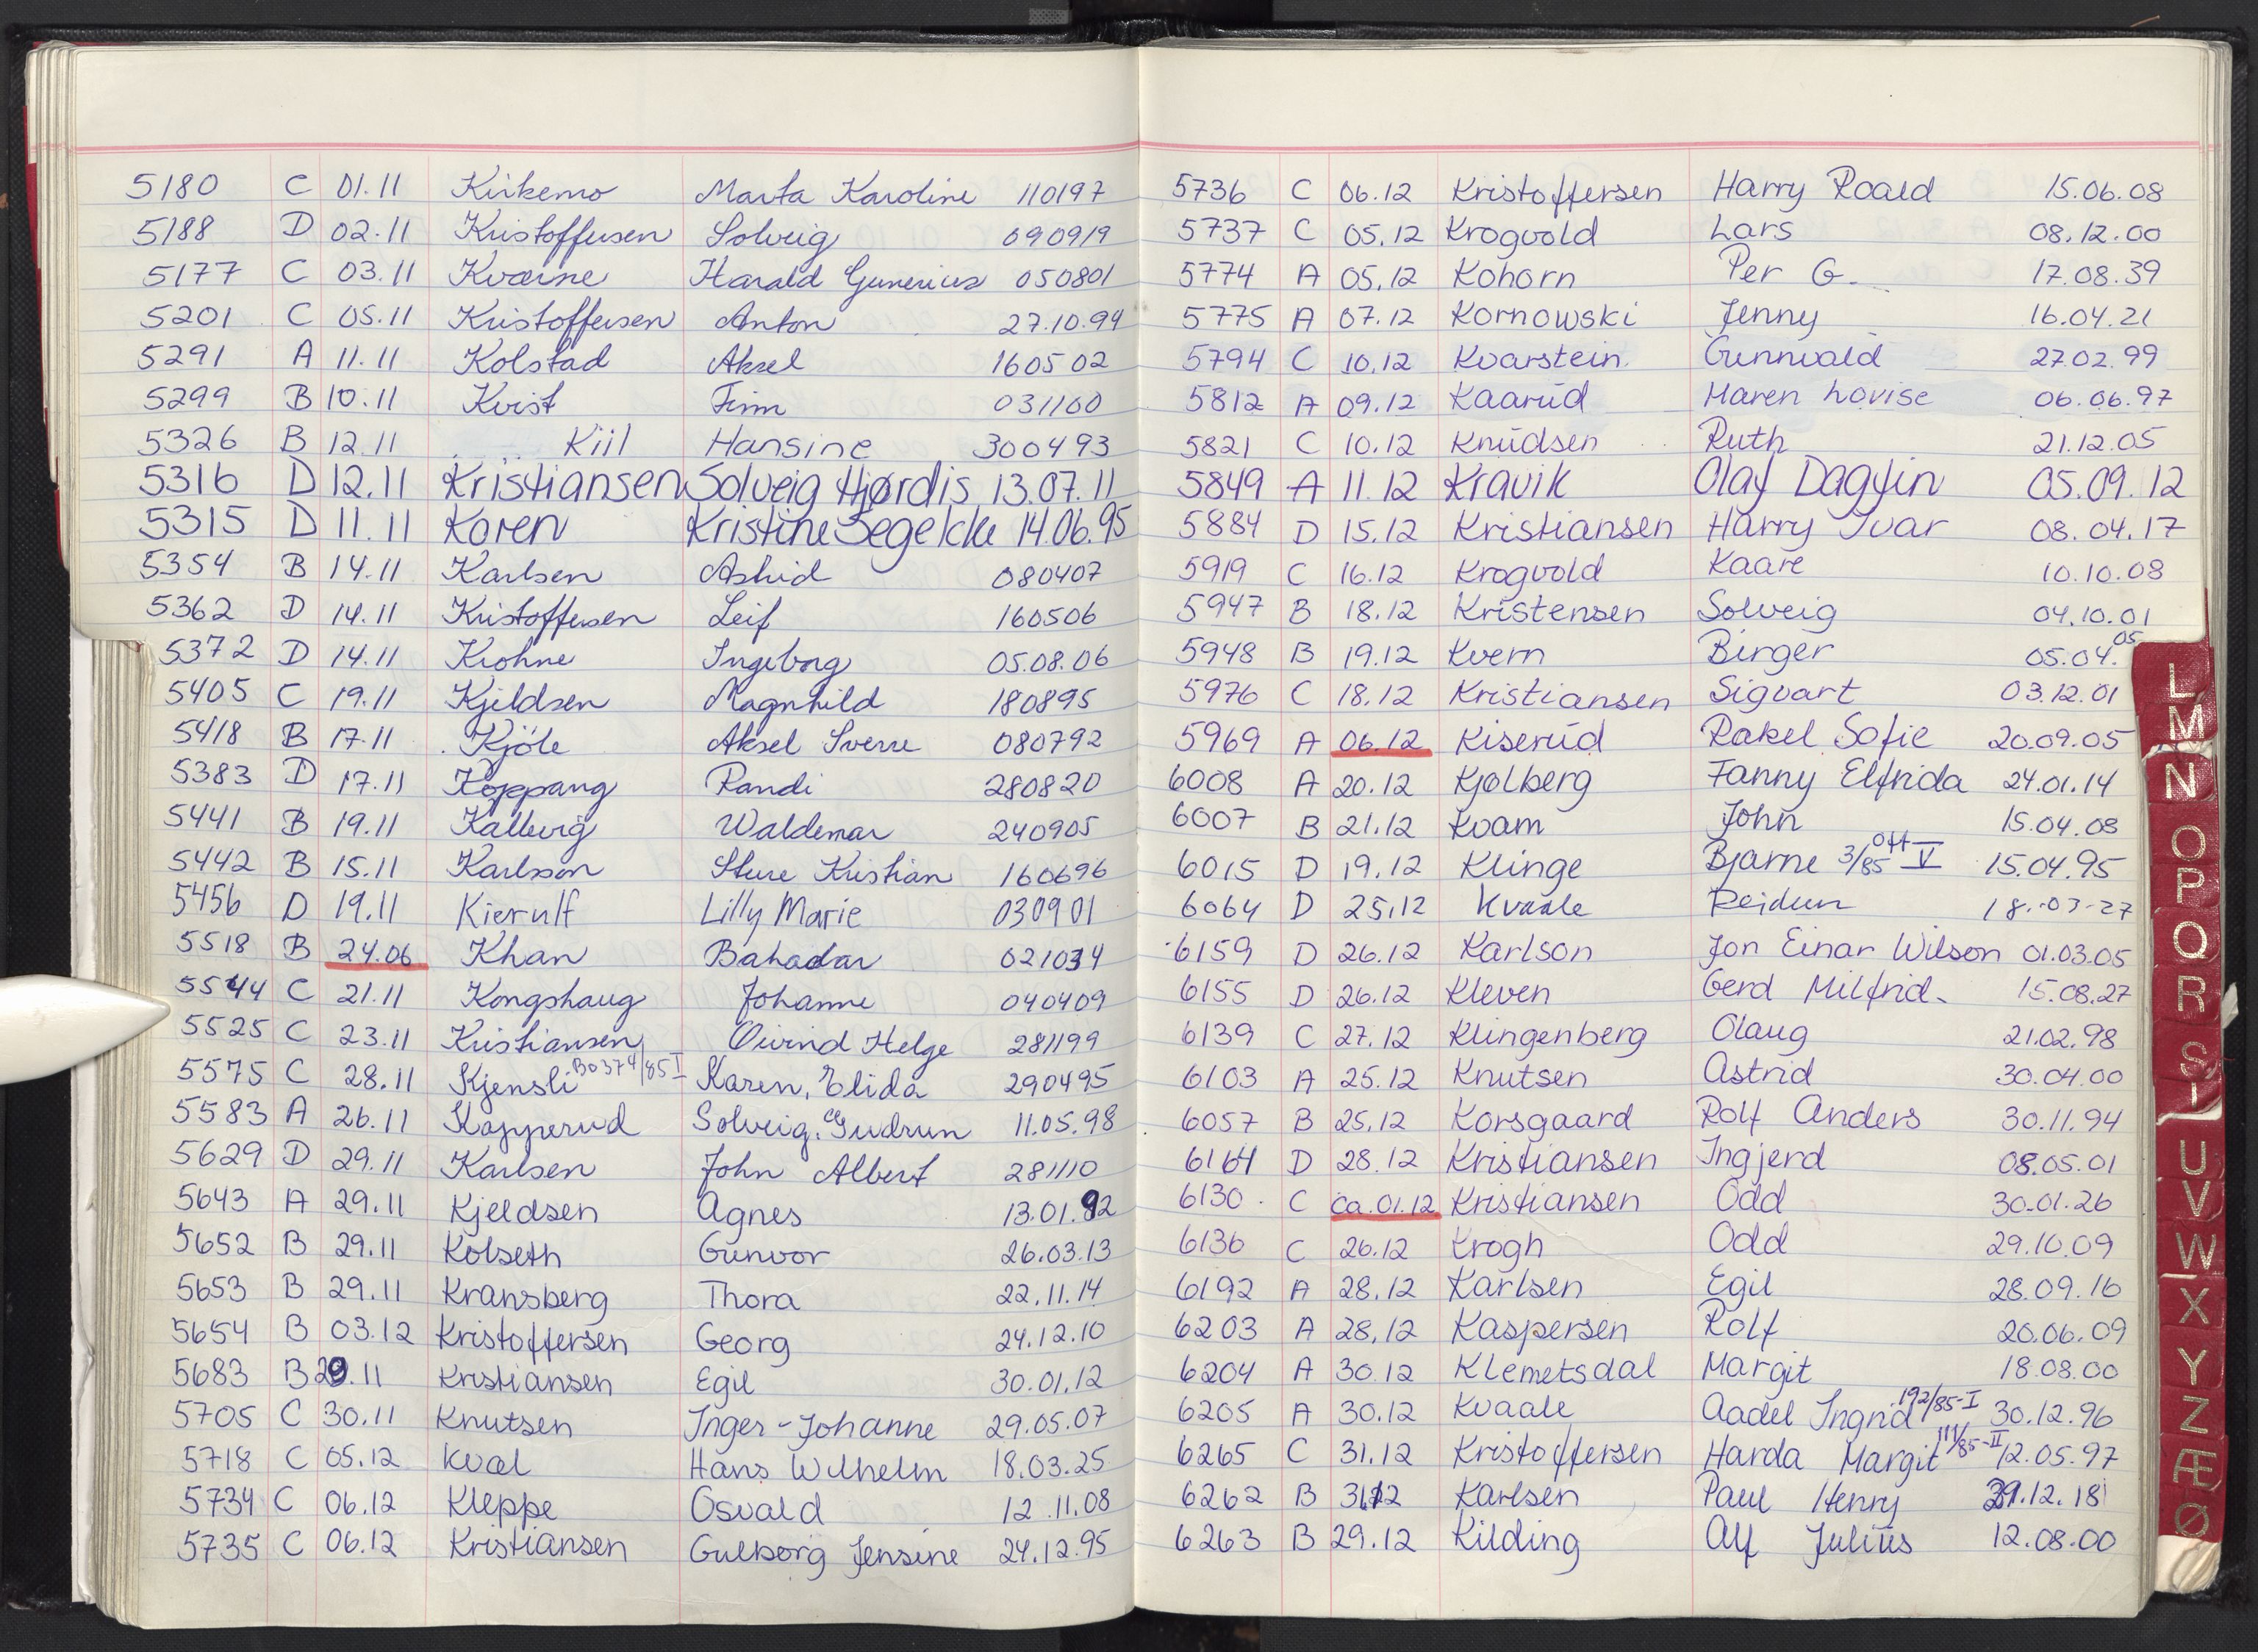 5180 C 01.11 Kirkemo Marta Karoline 110197
5188 D 02.11 Kristoffersen Solveig 090919
5177 C 03.11 Kværne Harald Gunerius 050801
5201 C 05.11 Kristoffersen Anton 27.10.94
5291 A 11.11 Kolstad Aksel 160502
5299 B 10.11 Kvist Finn 031100
5326 B 12.11 Kiil Hansine 300493
5316 D 12.11 Kristiansen Solveig Hjørdis 13.07.11
5315 D 11.11 Koren Kristine Segelcke 14.06.95
5354 B 14.11 Karlsen Astrid 080407
5362 D 14.11 Kristoffersen Leif 160506
5372 D 14.11 Krohne Ingeborg 05.08.06
5405 C 19.11 Kjeldsen Magnhild 180895
5418 B 17.11 Kjöle Aksel Sverre 080792
5383 D 17.11 Koppang Randi 280820
5441 B 19.11 Kallevig Waldemar 240905
5442 B 15.11 Karlsson Sture Kristian 160696
5456 D 19.11 Kierulf Lilly Marie 030901
5518 B 24.06 Khan Bahadar 021034
5544 C 21.11 Kongshaug Johanne 040409
5525 C 23.11 Kristiansen Öivind Helge 281199
5575 C 28.11 Kjensli Bo374/85 I Karen, Elida 290495
5583 A 26.11 Kapperud Solveig, Gudrun 11.05.98
5629 D 29.11 Karlsen John Albert 281110
5643 A 29.11 Kjeldsen Agnes 13.01.92
5652 B 29.11 Kolseth Gunvor 26.03.13
5653 B 29.11 Kransberg Thora 22.11.14
5654 B 03.12 Kristoffersen Georg 24.12.10
5683 B 29.11 Kristiansen Egil 30.01.12
5705 C 30.11 Knutsen Inger-Johanne 29.05.07
5718 C 05.12 Kval Hans Wilhelm 18.03.25
5734 C 06.12 Kleppe Osvald 12.11.08
5735 C 06.12 Kristiansen Gulborg Jensine 24.12.95
5736 C 06.12 Kristoffersen Harry Roald 15.06.08
5737 C 05.12 Krogvold Lars 08.12.00
5774 A 05.12 Kohorn Per G. 17.08.39
5775 A 07.12 Kornowski Jenny 16.04.21
5794 C 10.12 Kvarstein. Gunnvald 27.02.99
5812 A 09.12 Kaarud Maren Lovise 06.06.97
5821 C 10.12 Knudsen Ruth 21.12.05
5849 A 11.12 Kravik Olaf Dagfin 05.09.12
5884 D 15.12 Kristiansen Harry Ivar 08.04.17
5919 C 16.12 Krogvold Kaare 10.10.08
5947 B 18.12 Kristensen Solveig 04.10.01
5948 B 19.12 Kvern Birger 05.04.05
5976 C 18.12 Kristiansen Sigvart 03.12.01
5969 A 06.12 Kiserud Rakel Sofie 20.09.05
6008 A 20.12 Kjølberg Fanny Elfrida 24.01.14
6007 B 21.12 Kvam John 15.04.08
6015 D 19.12 Klinge Bjarne 3/85 Off V 15.04.95
6064 D 25.12 Kvaale Reidun 18.-03-27
6159 D 26.12 Karlson Jon Einar Wilson 01.03.05
6155 D 26.12 Kleven Gerd Milfrid. 15.08.27
6139 C 27.12 Klingenberg Olaug 21.02.98
6103 A 25.12 Knutsen Astrid 30.04.00
6057 B 25.12 Korsgaard Rolf Anders 30.11.94
6164 D 28.12 Kristiansen Ingjerd 08.05.01
6130 C ca.01.12 Kristiansen Odd 30.01.26
6136 C 26.12 Krogh Odd 29.10.09
6192 A 28.12 Karlsen Egil 28.09.16
6203 A 28.12 Kaspersen Rolf 20.06.09
6204 A 30.12 Klemetsdal Margit 18.08.00
6205 A 30.12 Kvaale Aadel Ingrid 192/85-I 30.12.96
6265 C 31.12 Kristoffersen Harda Margit 111/85-II 12.05.97
6262 B 31.12 Karlsen Paul Henry 29.12.18
6263 B 29.12 Kilding Alf Julius 12.08.00
L
M
N
O
P
Q
R
S
U
V
W
X
Y
Z
Æ
Ø